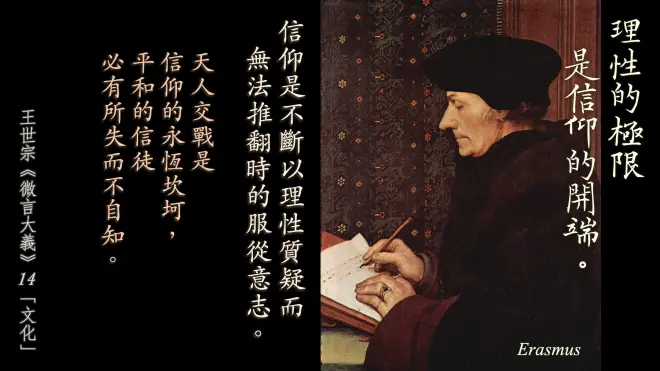 理性的極限
是信仰的開端。
信仰是不斷以理性質疑而
無法推翻時的服從意志。
天人交戰是
信仰的永恆坎坷，
平和的信徒
必有所失而不自知。
王世宗《微言大義》14「文化」
Erasmus